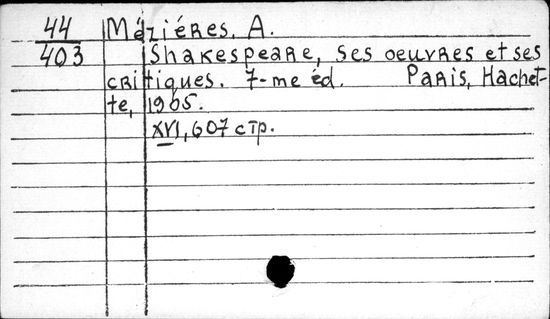 44 Méziéres, A.
403 Shakespeare, ses oeuvres et ses
critiques. 7-me éd. Paris, Hachet-
te, 1905.
XVI, 607 стр.